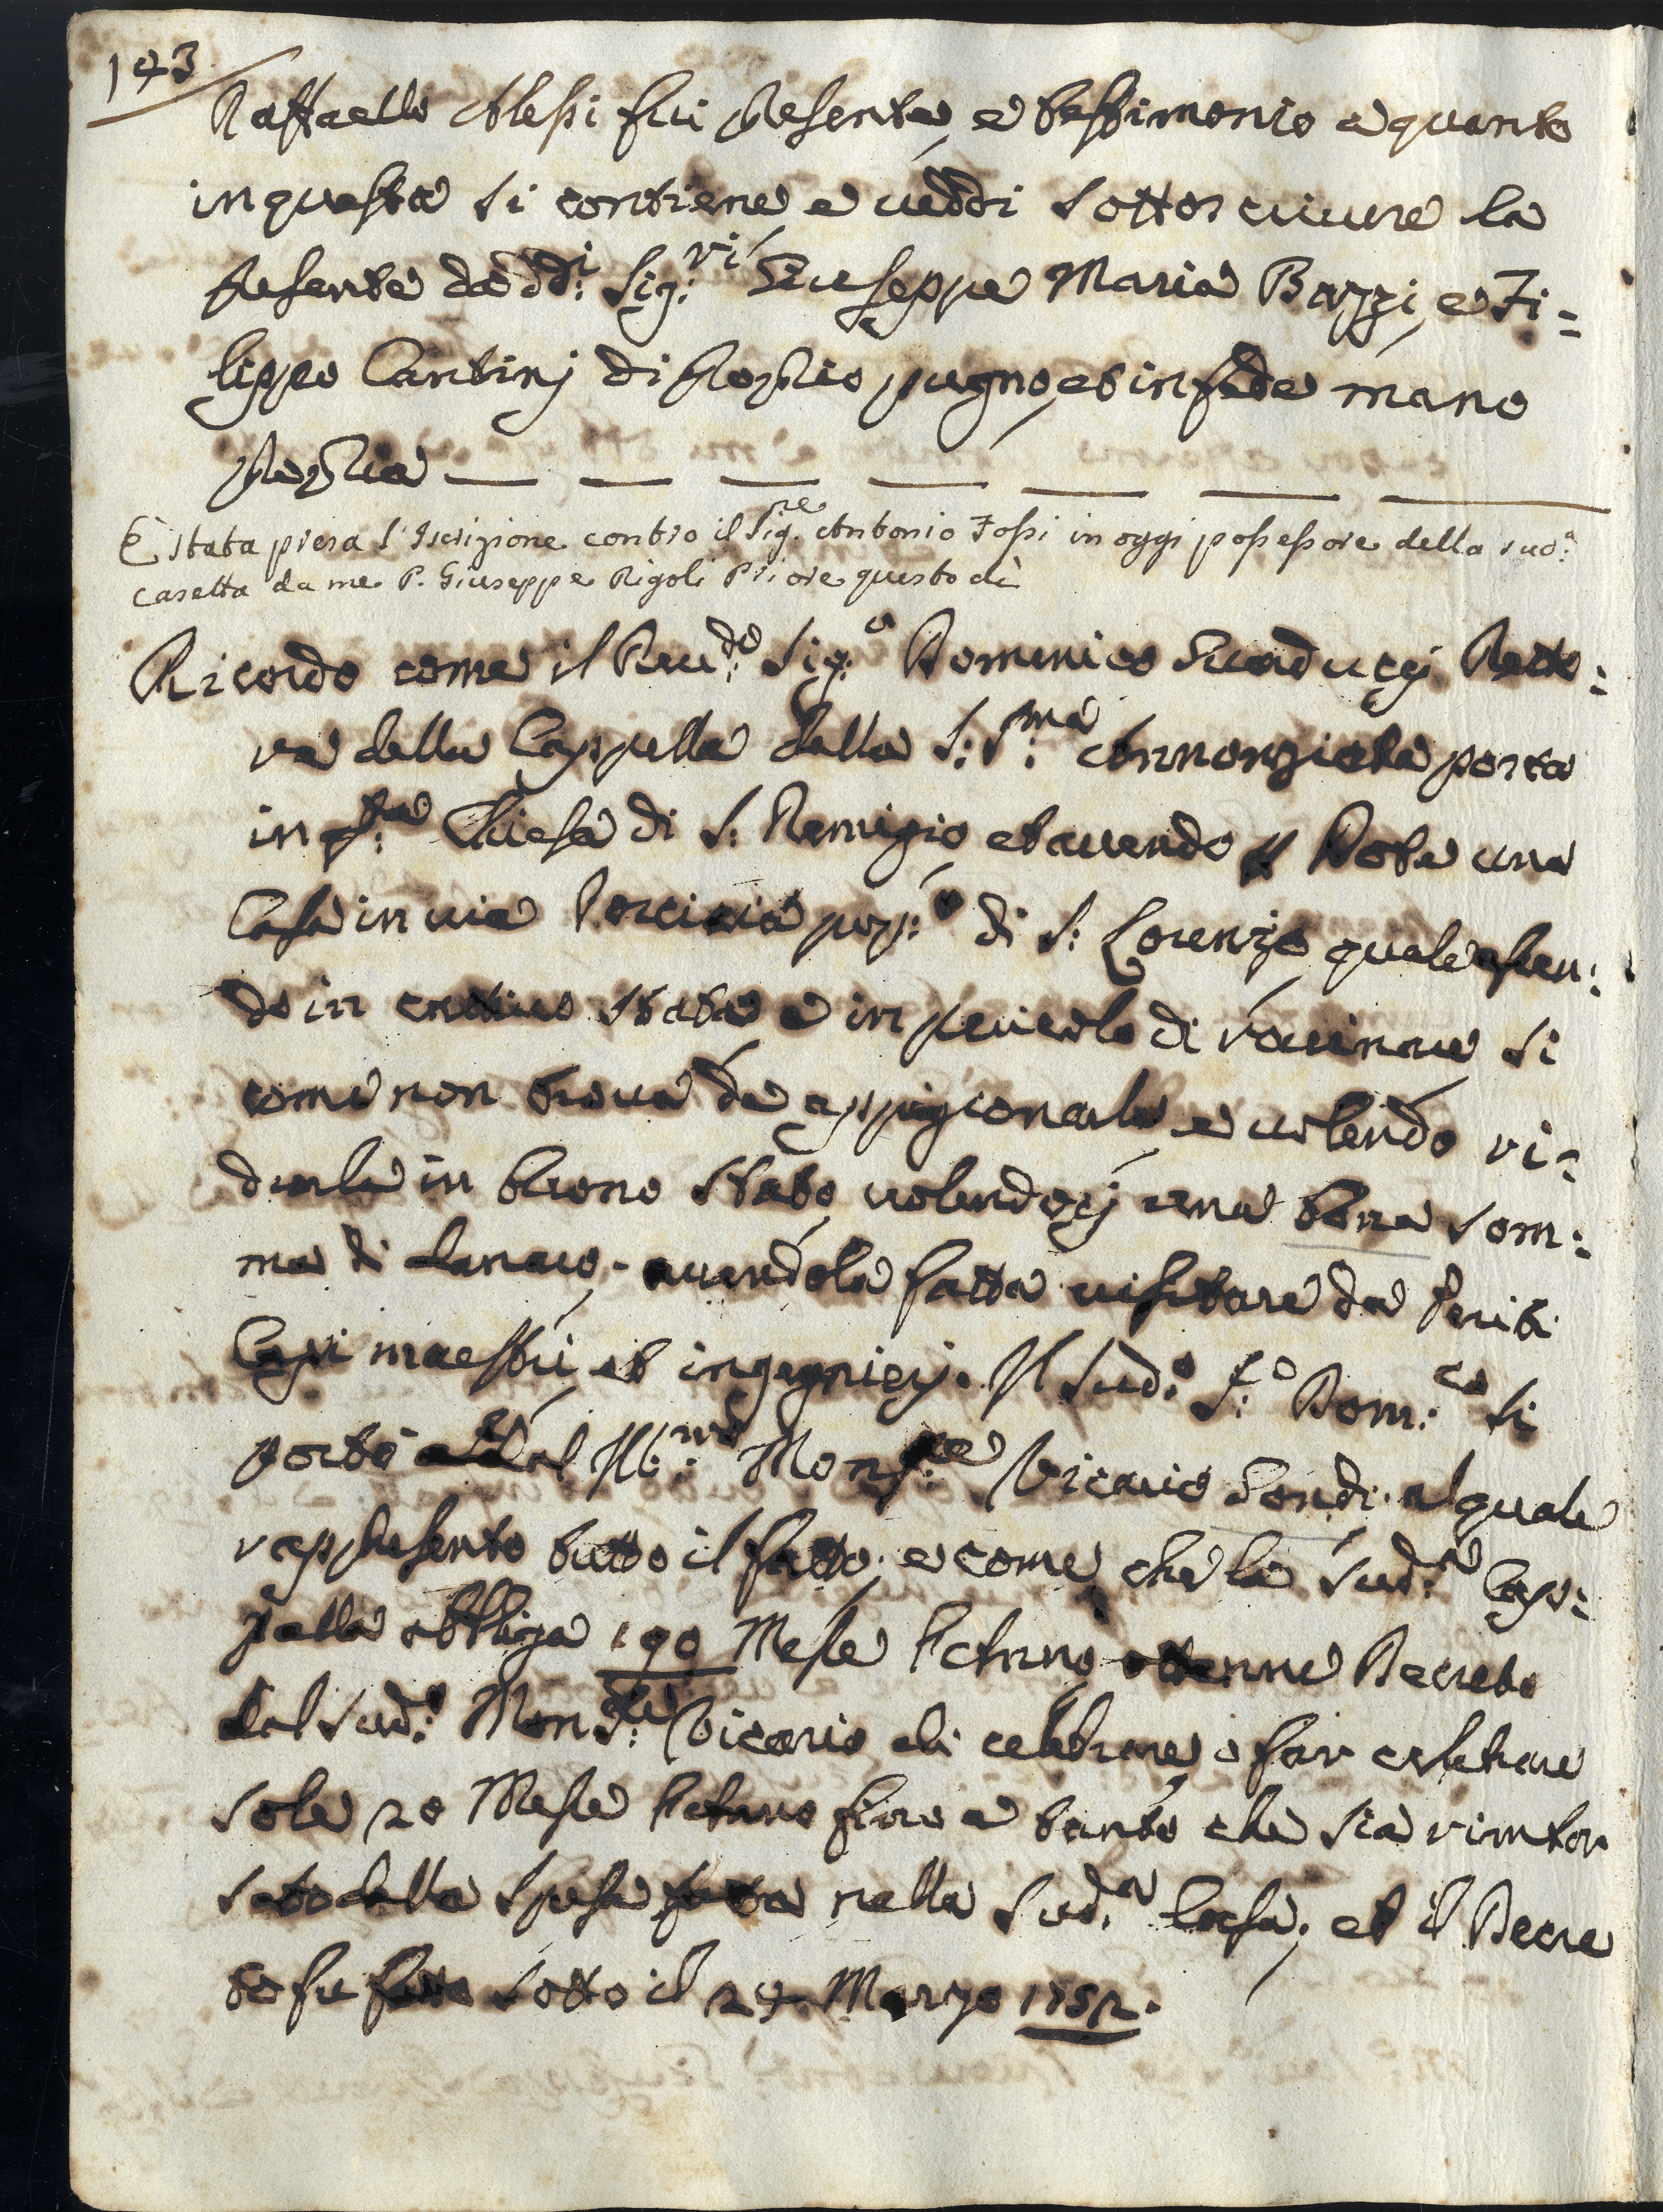 143
Raffaello Alessi fui presente e testimonio a quanto
in questa si contiene e veddi sottoscrivere la
presente da dd:i Sig:ri Giuseppe Maria Bazzi, e Fi=
lippo Cantinj di proprio pugno, et in fede mano
propria
È stata presa l'Iscrizione contro il Sig.re Antonio Fossi in oggi possessore della sud.a
casetta da me P. Giuseppe Rigoli Priore questo dì
Ricordo come il Reu:do Sig:e Domenico Guaducej Retto:
re della Cappella della S:S:ma Annonziata posta
in q:ta Chiesa di S: Remigio et avendo p Dote una
Casa in via Porciaia pop:o di S: Lorenzo quale essen:
do in cattivo stato e in pericolo di rovinare si
come non trova da appigionarla, e volendo ri=
durla in buono stato, volendocj una bona som:
ma di danaro, avendola fatta visitare da Periti
Capi maestri, et ingegnierj. Il Sud:o S:e Dom:co si
portò al Ill:mo Mons:re Vicario Gondi al quale
rappresento tutto il fatto, e come che la Sud:a Cap:
pella obbliga 190 Messe l'Anno, ottenne Decreto
dal Sud:o Mons:re Vicario di celebrare, o far celebrare
sole 20 Messe l'Anno fino a tanto che sia rimbor
sato dalla spesa fatta nella Sud:a Casa, et il Decre
to fu fatto sotto il 24 Marzo 1752.